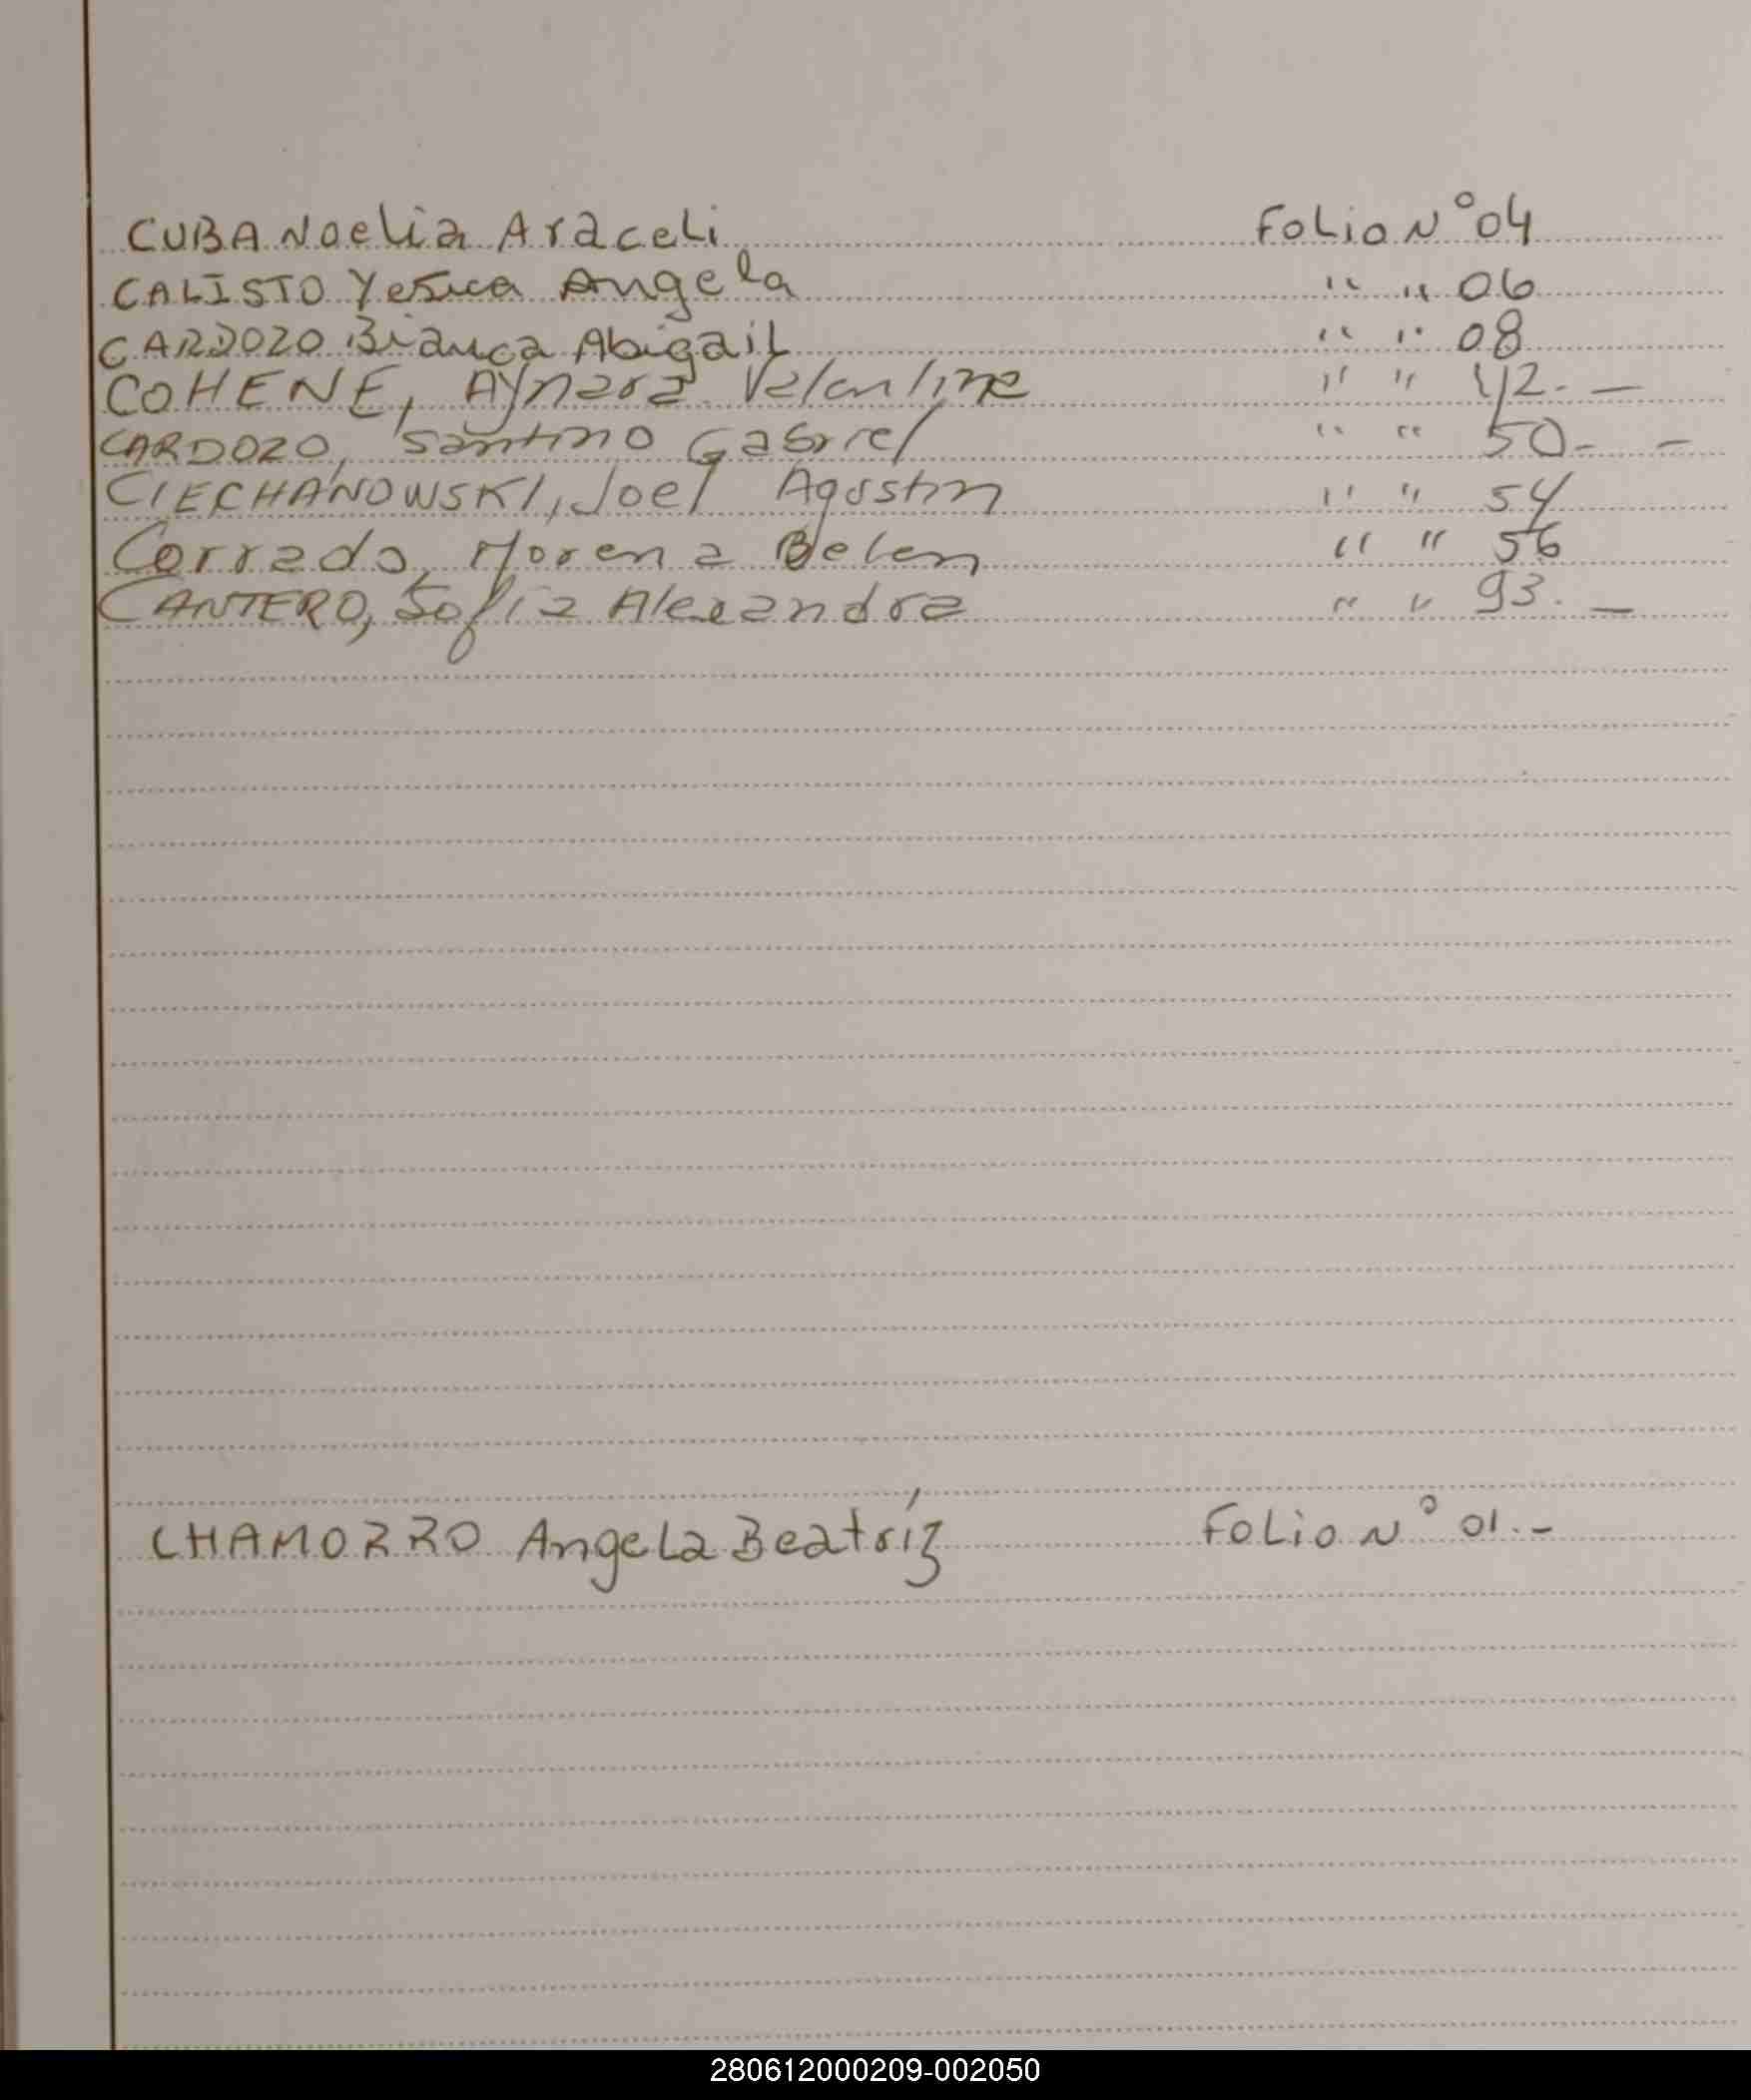 CUBA Noelia Araceli Folio N° 04
CALISTO Yesica Angela " " 06
CARDOZO Bianca Abigail " " 08
COHENE, Aynara Valentina " " 42. —
CARDOZO, Santino Gabriel " " 50. —
CIECHANOWSKI, Joel Agustin " " 54
Corrado, Morena Belen " " 56
CANTERO, Sofia Alexandra " " 93. —
CHAMORRO Angela Beatríz Folio N° 01.-
280612000209-002050